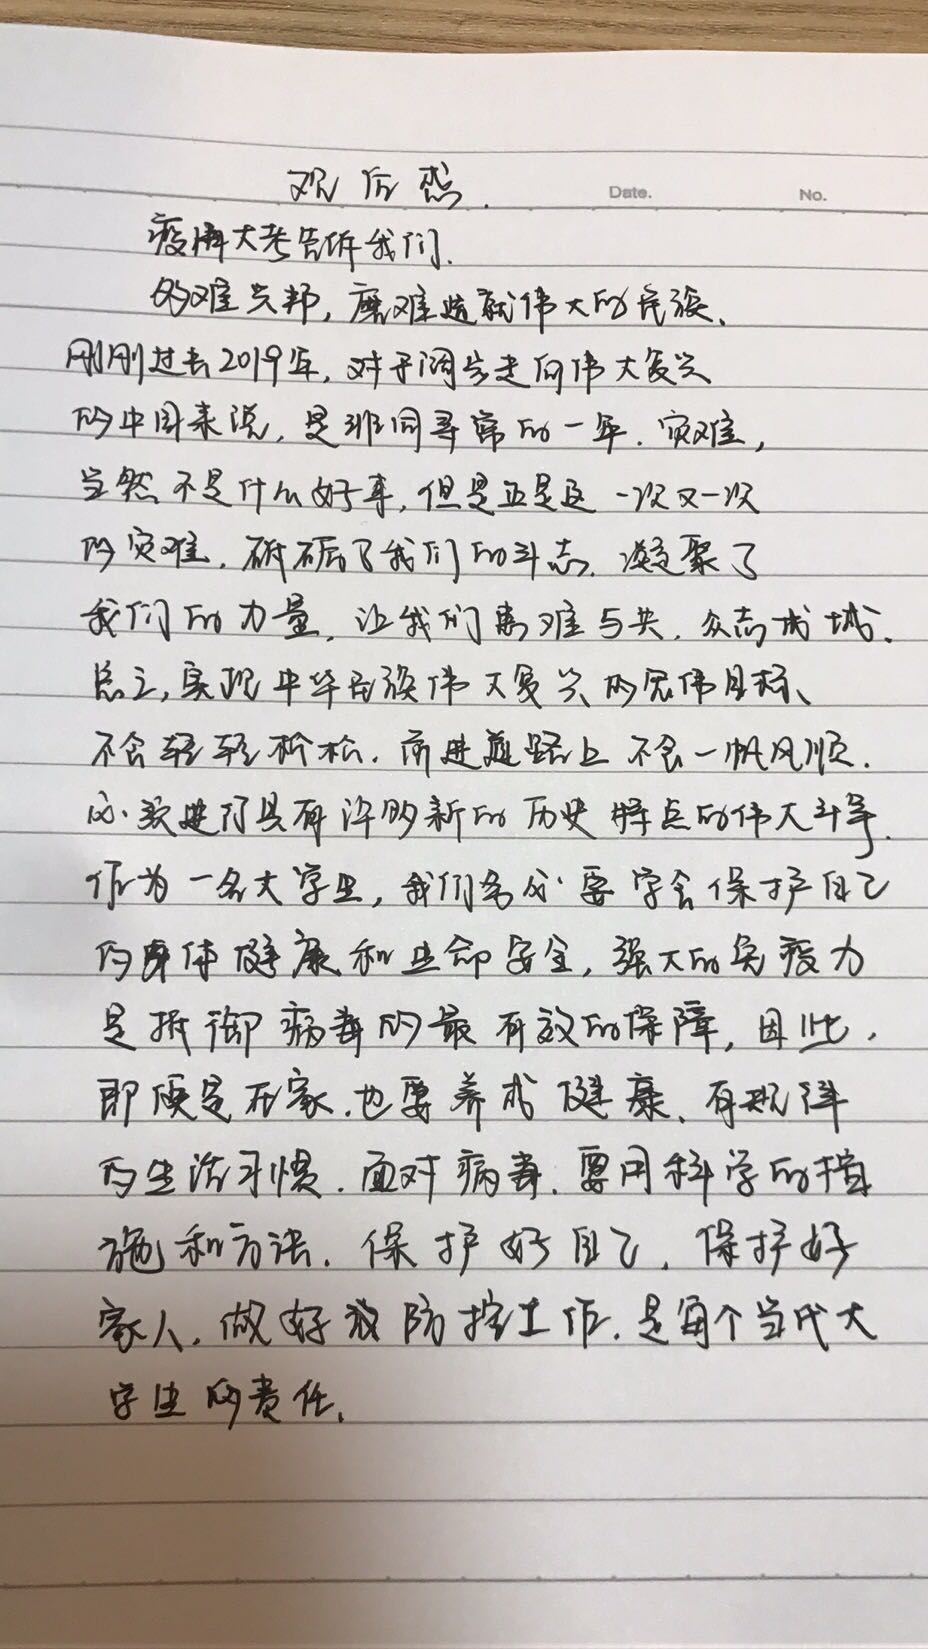 观后感.
Date. No.
疫情大考告诉我们.
多难兴邦, 磨难造就伟大的民族、
刚刚过去2019年, 对于阔步走向伟大复兴
的中国来说, 是非同寻常的一年. 灾难,
当然不是什么好事, 但是正是这一次又一次
的灾难. 砥砺了我们的斗志. 凝聚了
我们的力量, 让我们患难与共. 众志成城.
总之, 实现中华民族伟大复兴的宏伟目标、
不会轻轻松松. 前进道路上不会一帆风顺.
必须进行具有许多新的历史特点的伟大斗争.
作为一名大学生, 我们务必要学会保护自己
的身体健康和生命安全, 强大的免疫力
是抵御病毒的最有效的保障, 因此.
即便是在家. 也要养成健康、有规律
的生活习惯. 面对病毒. 要用科学的措
施和方法. 保护好自己, 保护好
家人. 做好 防控工作. 是每个当代大
学生的责任.